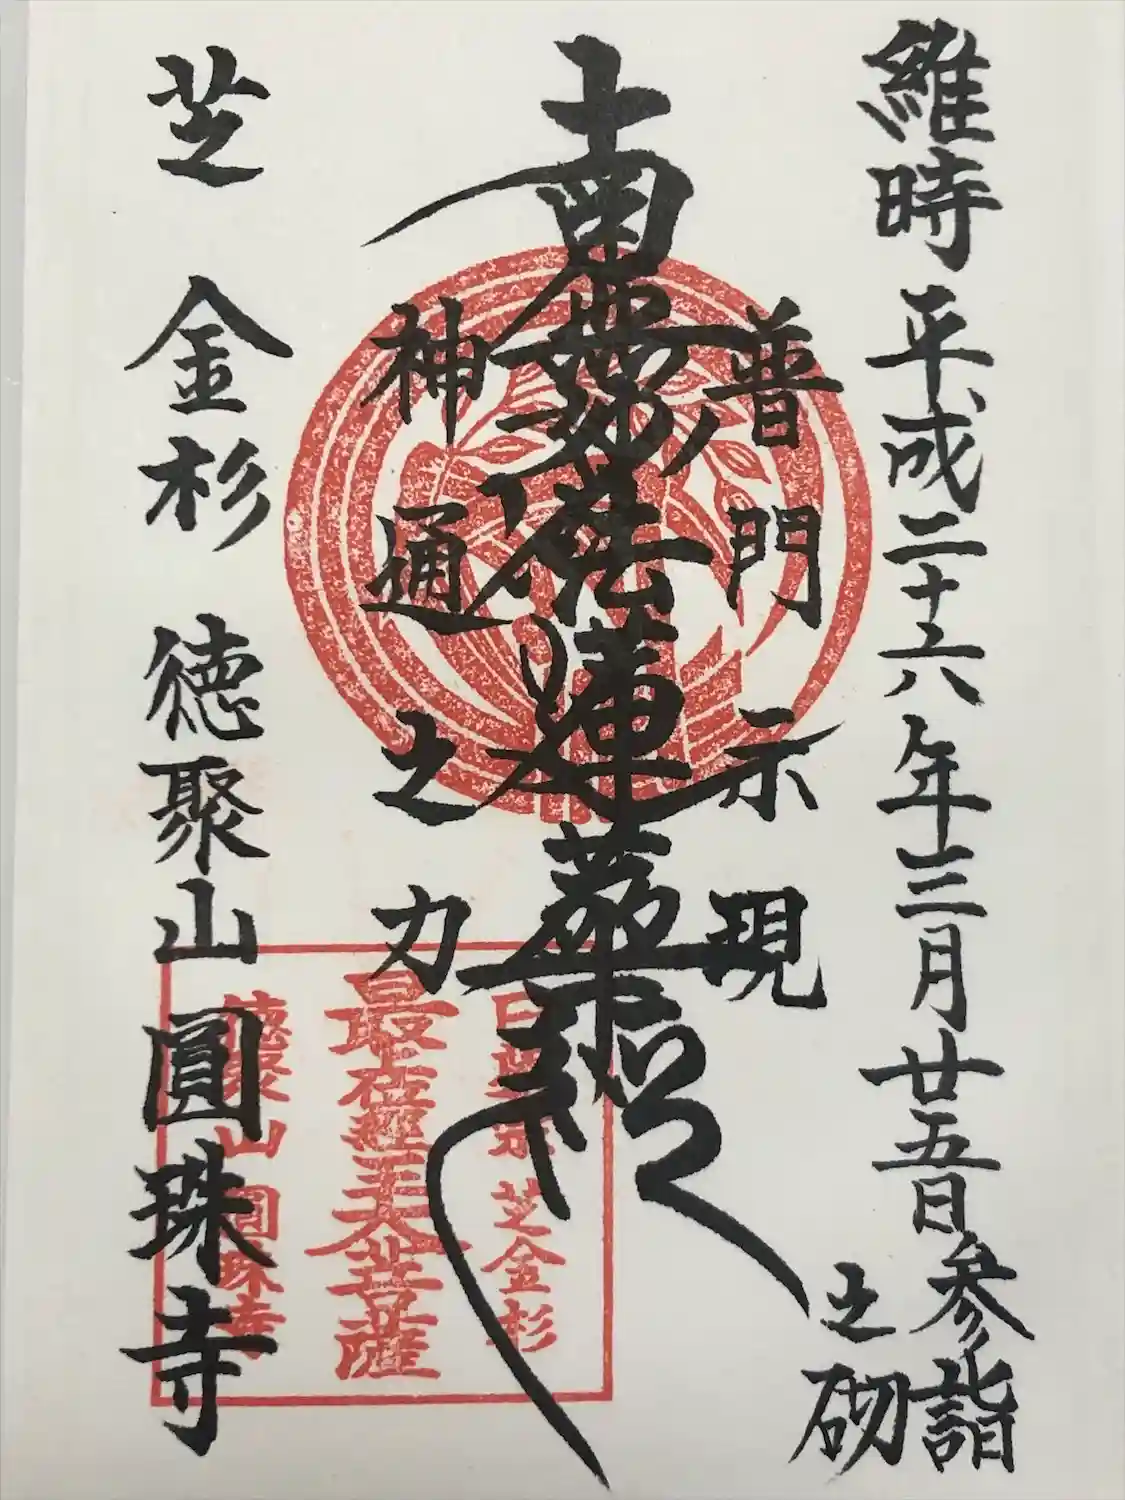 維時平成二十六年三月廿五日参詣
之砌
普門示現
南無妙法蓮華経
神通之力
芝 金杉 徳聚山 圓珠寺
日蓮宗 芝金杉
最位經王大菩薩
徳聚山 圓珠寺